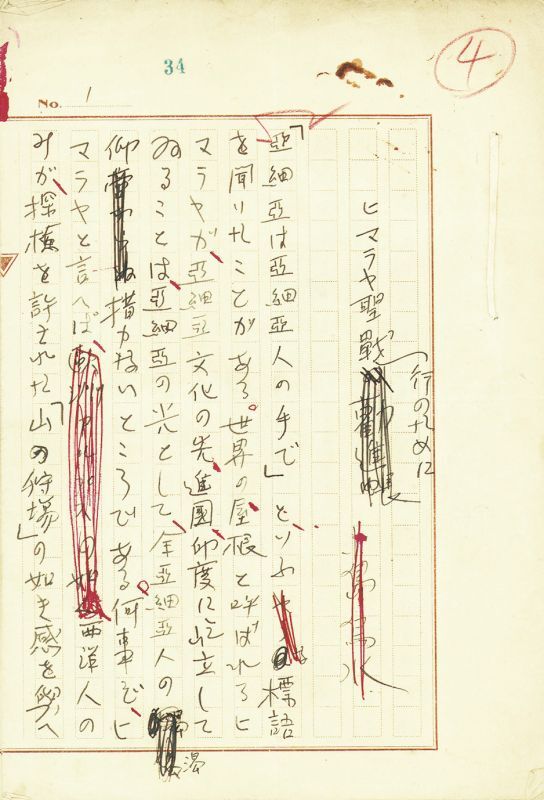 34
4
No. 1
ヒマラヤ聖戰行のために
「亞細亞は亞細亞人の手で」といふ標語
を聞いたことがある。世界の屋根と呼ばれるヒ
マラヤが、亞細亞文化の先進國印度に屹立して
ゐることは、亞細亞の光として、全亞細亞人の渇
仰措かないところである。何事ぞ、ヒ
マラヤと言へば、西洋人の
みが、探檢を許された山「の狩場」の如き感を與へ